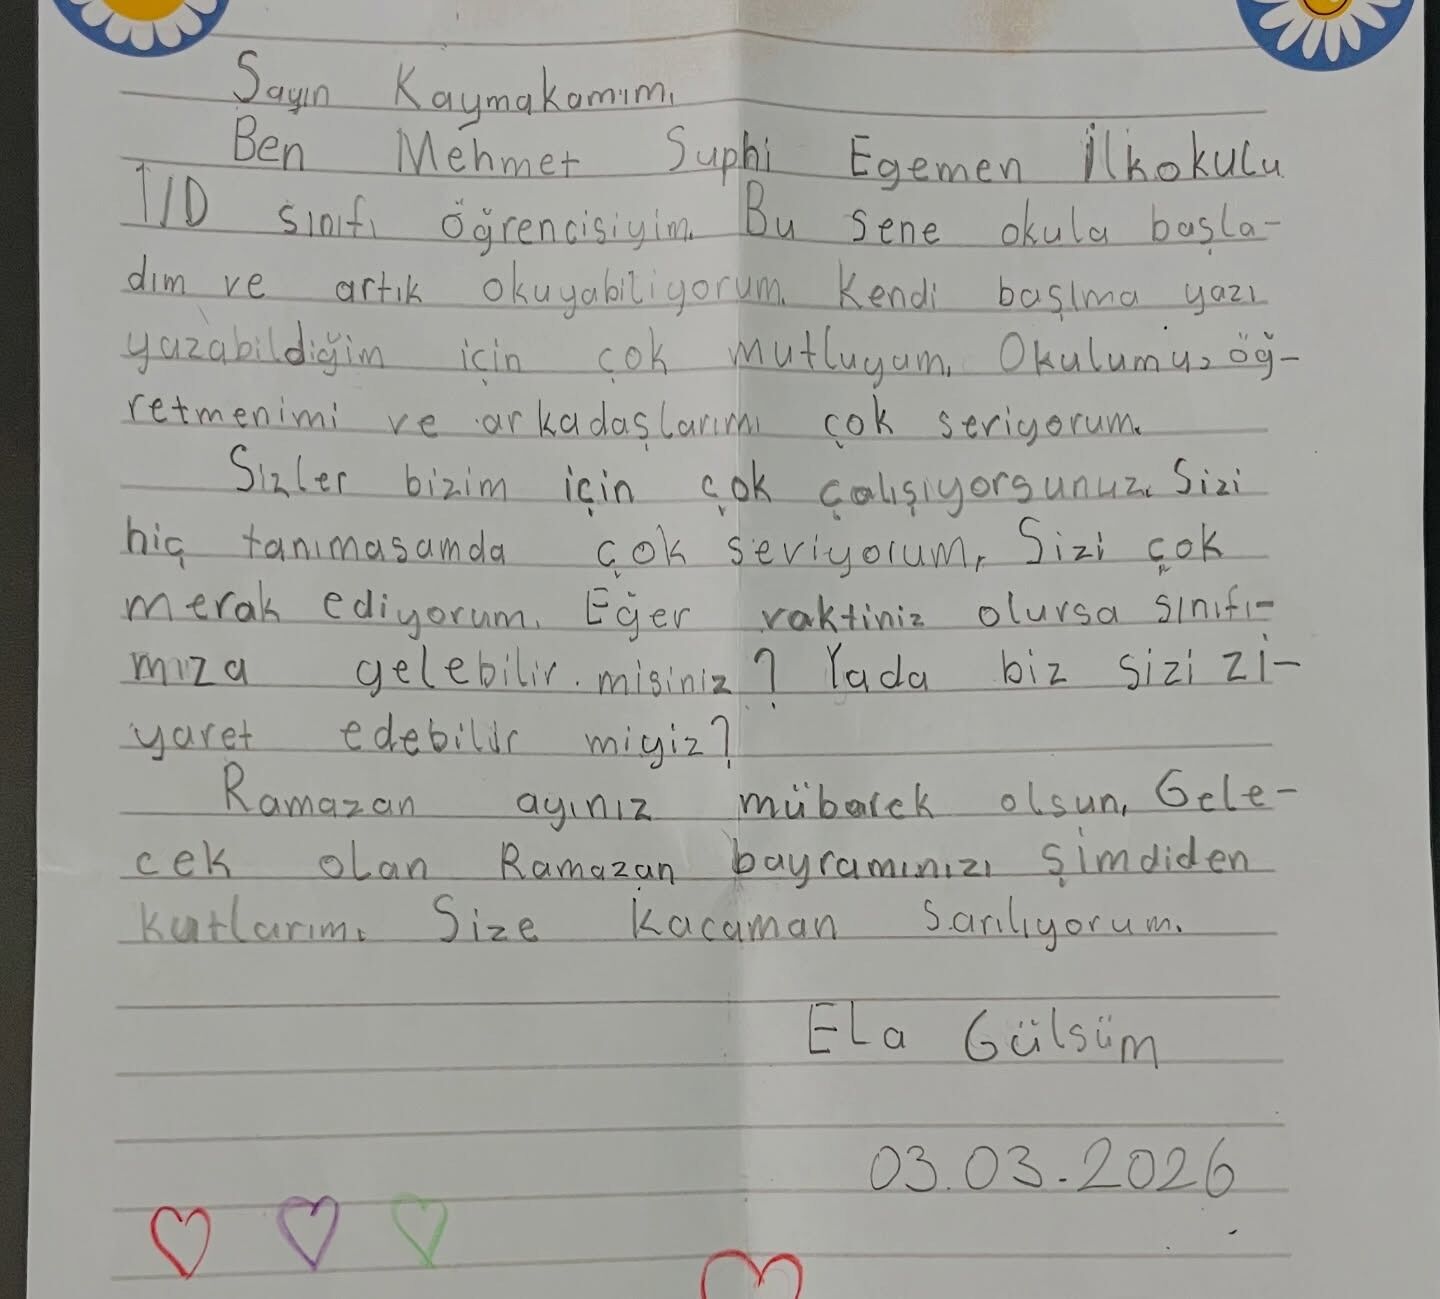 Sayın Kaymakamım,
Ben Mehmet Suphi Egemen İlkokulu
1/D sınıfı öğrencisiyim. Bu sene okula başla-
dım ve artık okuyabiliyorum. Kendi başıma yazı
yazabildiğim için çok mutluyum. Okulumu, öğ-
retmenimi ve arkadaşlarımı çok seviyorum.
Sizler bizim için çok çalışıyorsunuz. Sizi
hiç tanımasamda çok seviyorum. Sizi çok
merak ediyorum. Eğer vaktiniz olursa sınıfı-
mıza gelebilir misiniz? Yada biz sizi zi-
yaret edebilir miyiz?
Ramazan ayınız mübarek olsun. Gele-
cek olan Ramazan bayramınızı şimdiden
kutlarım. Size kacaman sarılıyorum.
Ela Gülsüm
03.03.2026